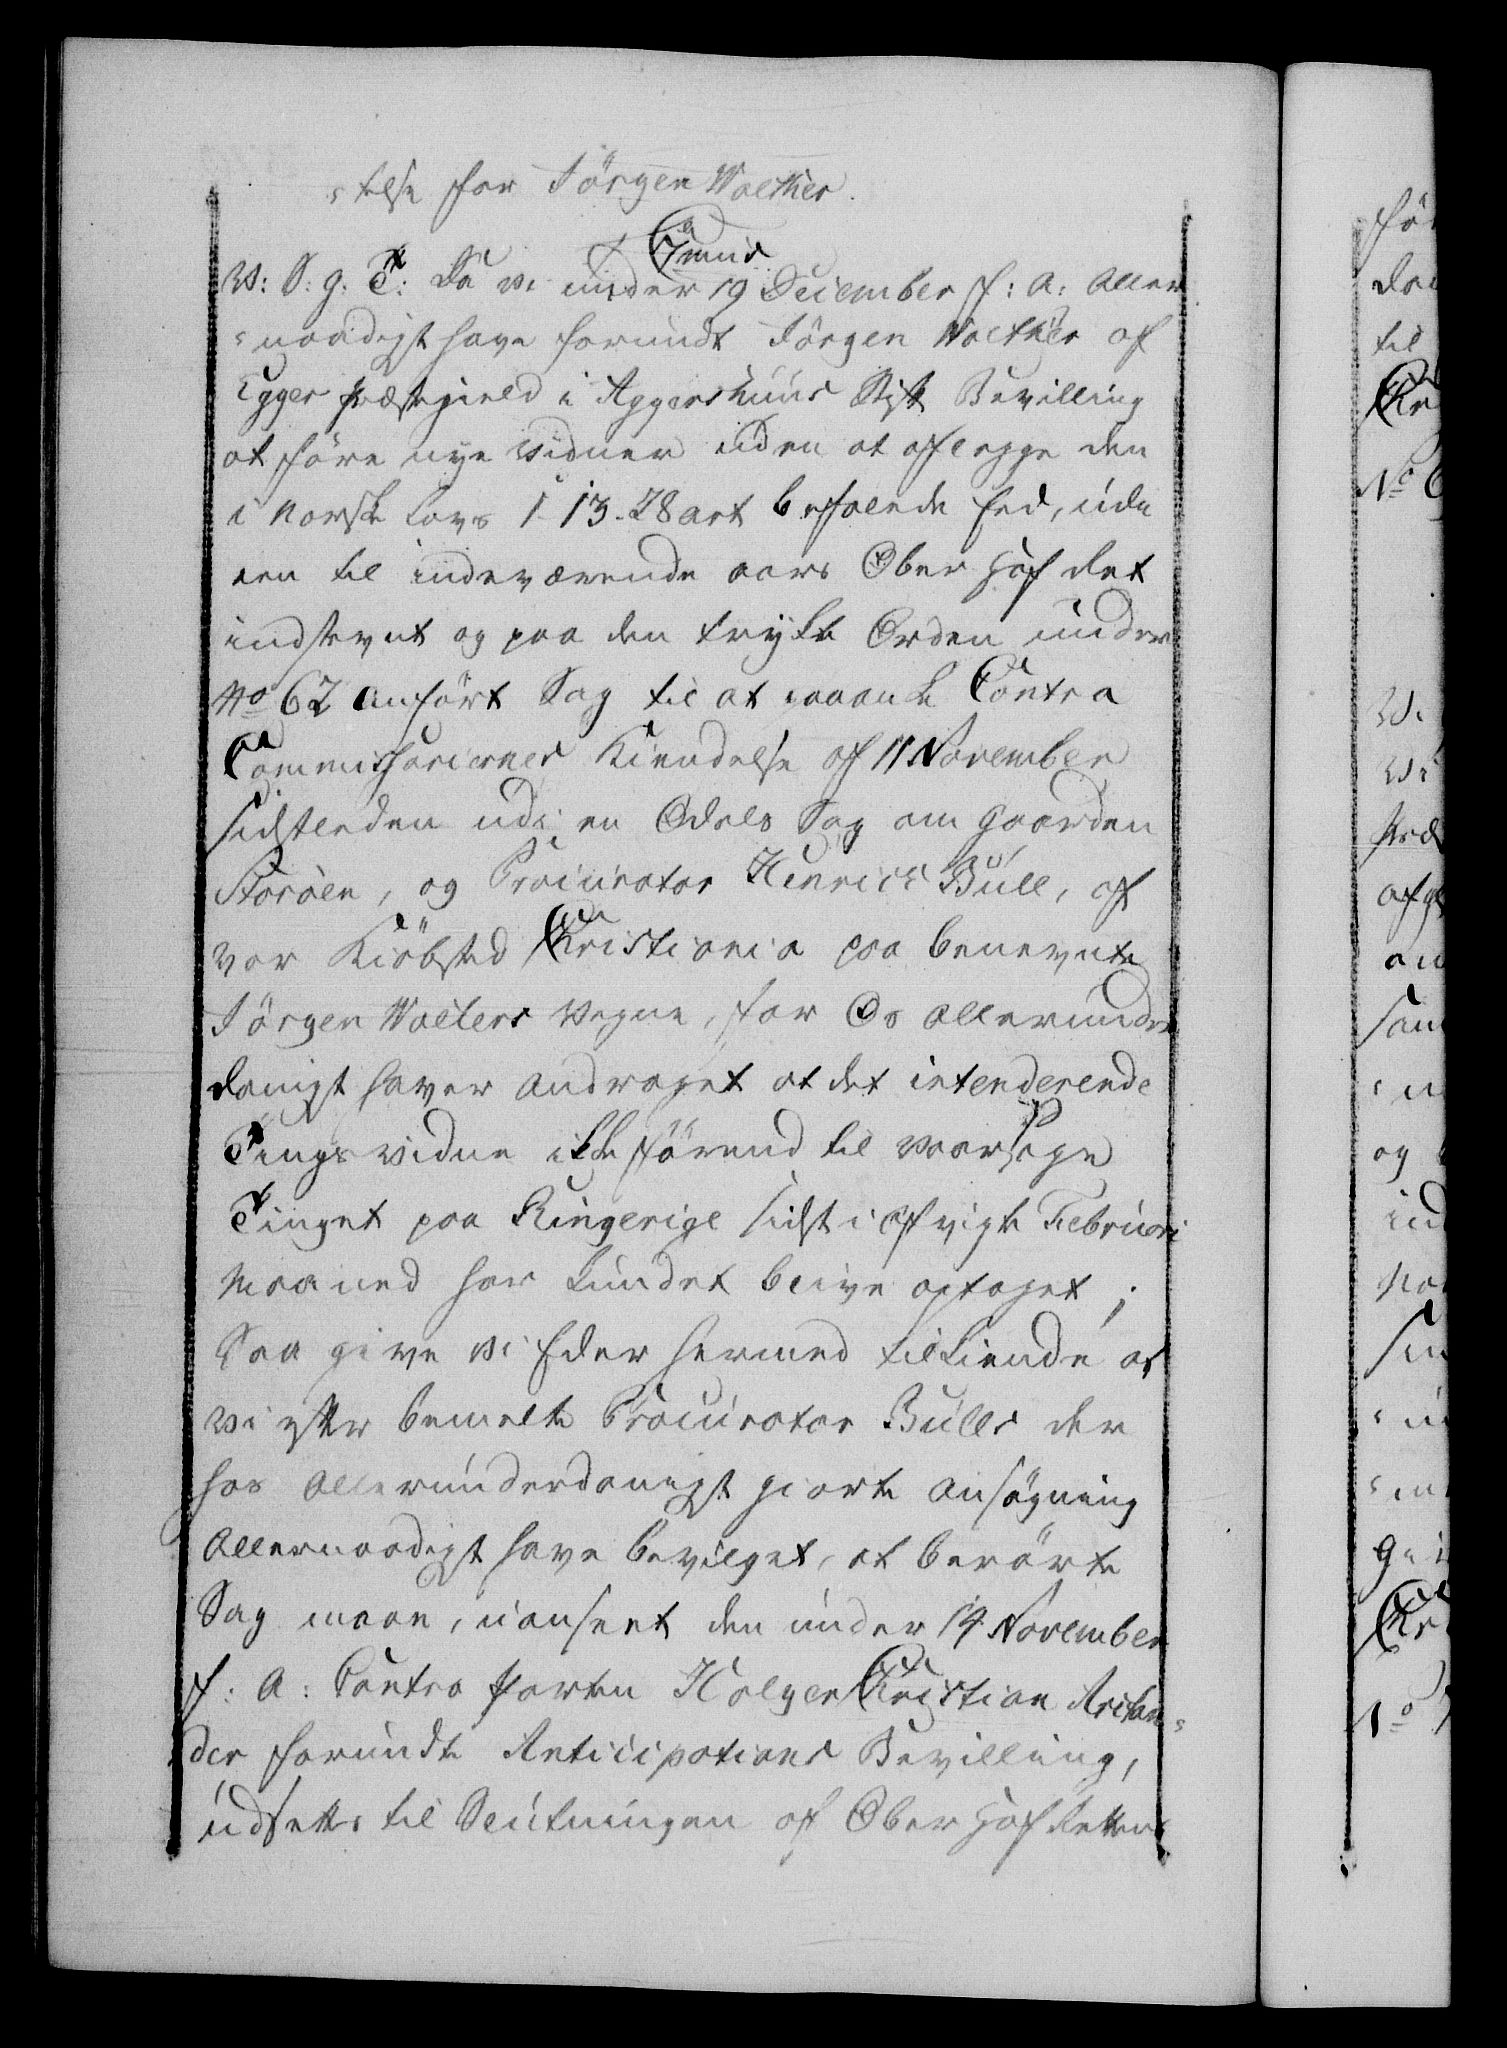 telse for Jörgen Wolther.
W: S: G: T: Da vi under 19 December f: A: Aller
naadigst have forundt Jörgen Wolther af
Egger Præstegield i Aggershuus Stift Bevilling
at före nye Vidner uden at aflegge den
i Norske Lovs 1-13-28 art befalende Eed, udi
een til indeværende aars Ober Hof Ret
indstevnt og paa den trykte Orden under
No 62 anfört Sag til at paaanke Contra
Commissariernes Kiendelse af 11 November
sidstleden udi en Odels Sag om Gaarden
Storöen, og Procurator Henrich Bull, af
vor Kiöbsted Christiania paa benevnte
Jörgen Wolters Vegne, for Os allerunder
danigst haver andraget at det intenderende
Tingsvidne ikke förend til Vaar
Tinget paa Ringerige sidst i afvigte Februari
Maaned har kundet blive optaget;
Saa give vi Eder hermed tilkiende at
vi efter bemelte Procurator Bulls der
hos allerunderdanigst giorte Ansögning
Allernaadigst have bevilget, at berörte
Sag maae, uanseet den under 14 November
f: A: Contra Parten Holger Christian
der forundte Anticipations Bevilling,
udsettes til Slutningen af Ober Hof Rettens